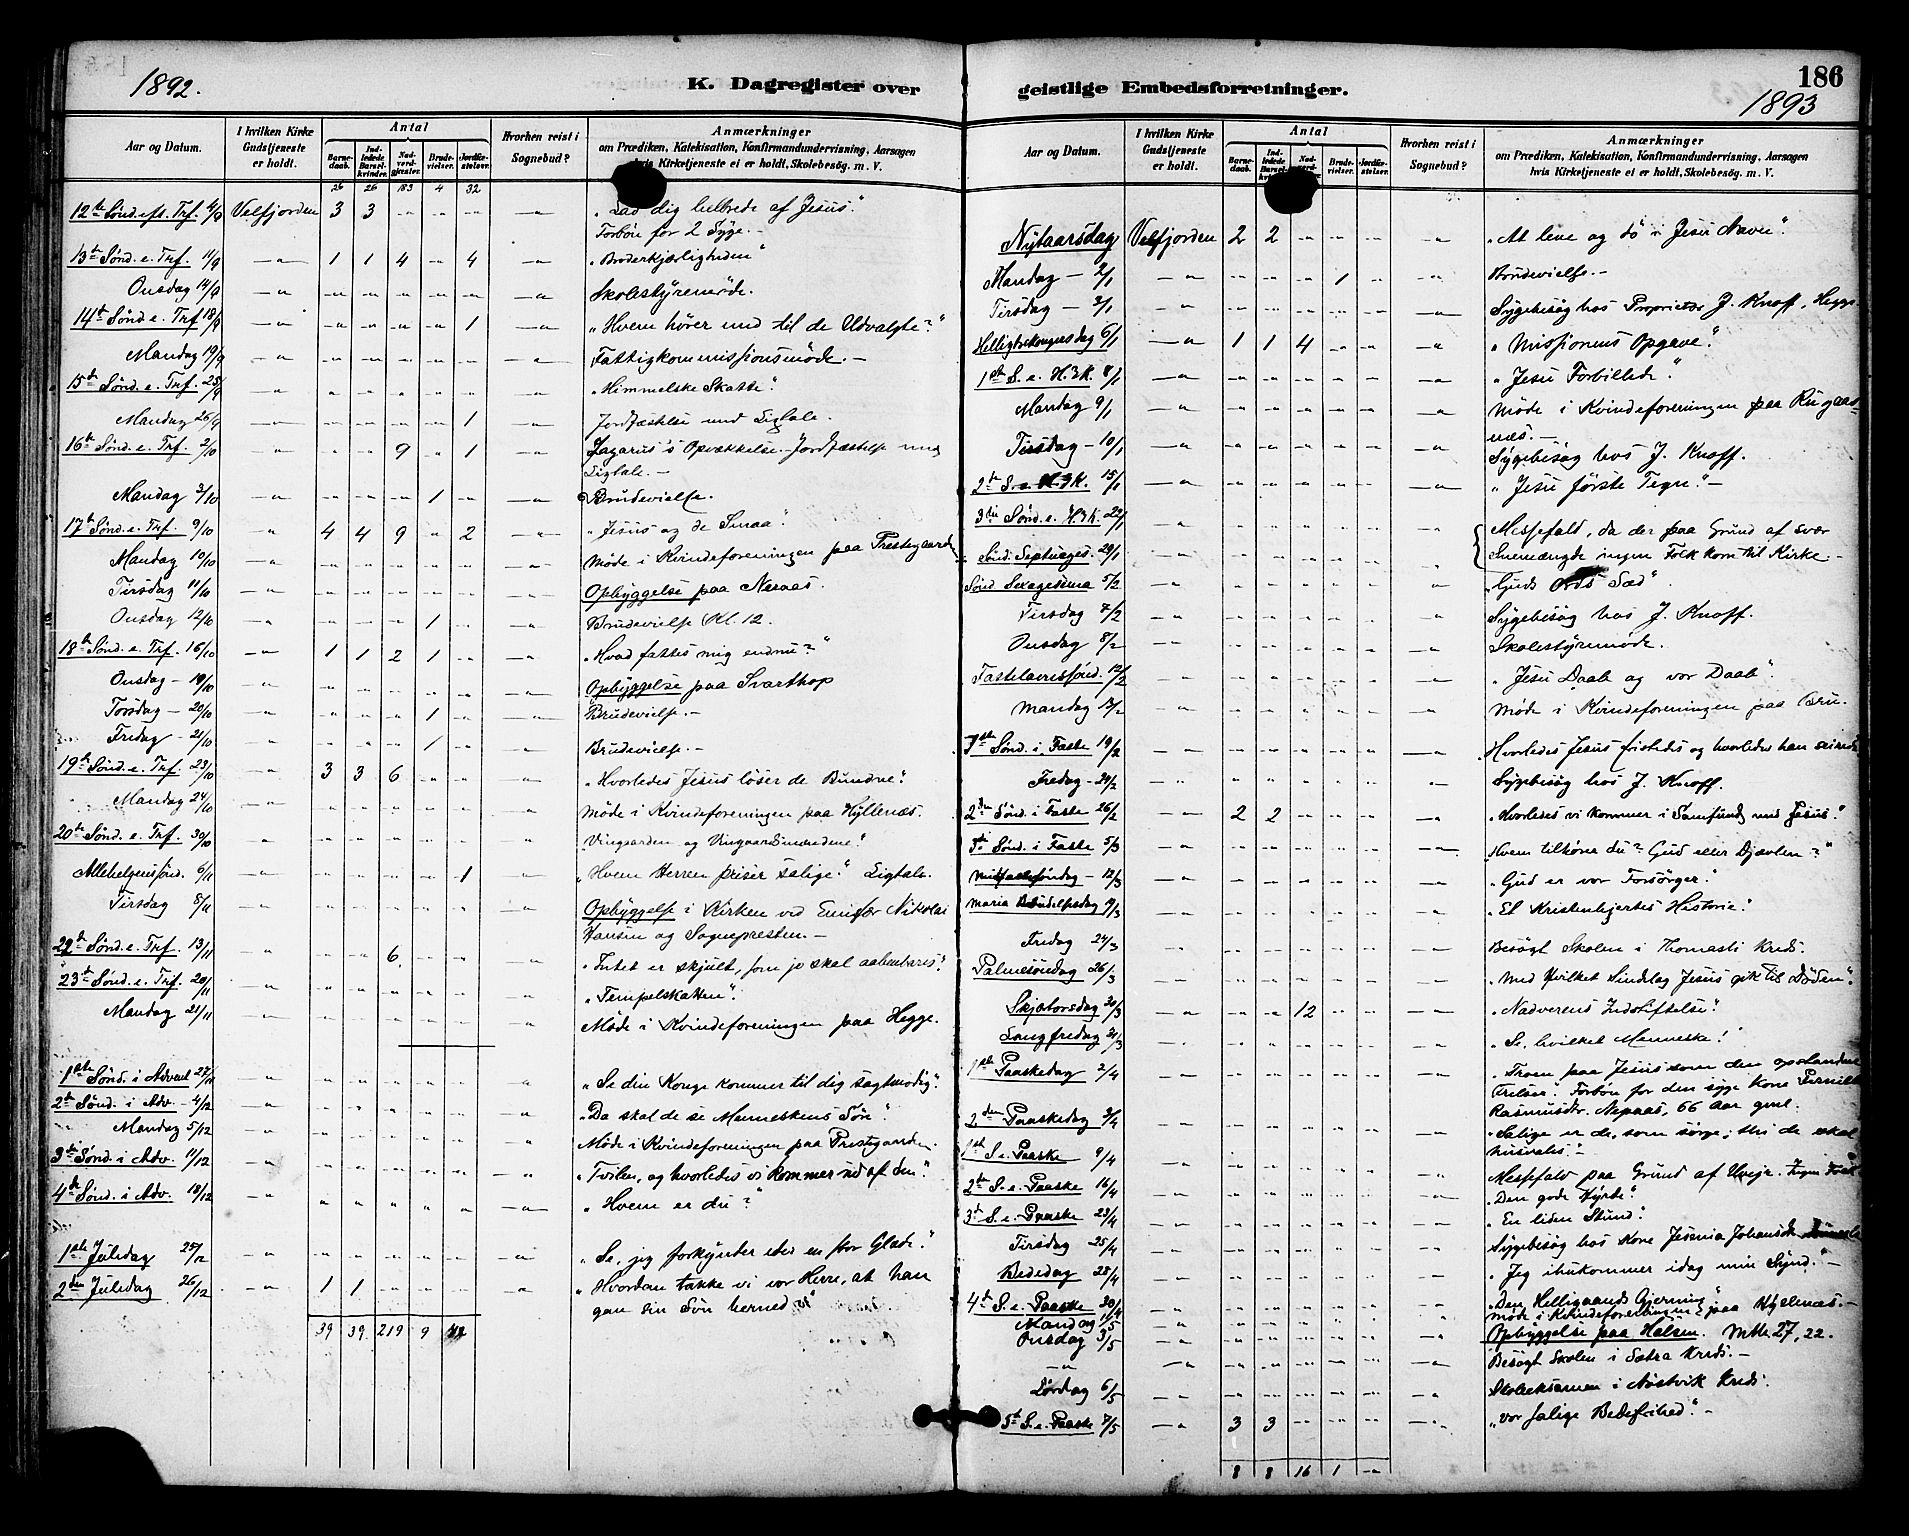 1892.
K. Dagregister over
Aar og Datum.
I hvilken Kirke Gudstjeneste er holdt.
Antal
Barnedaab.
Indledede Barselkvinder.
Nadverdgjester.
Brudevielser.
Jordfæstelser.
Hvorhen reist i Sognebud?
Anmærkninger
om Prædiken, Katekisation, Konfirmandundervisning, Aarsagen
hvis Kirketjeneste ei er holdt, Skolebesøg. m. V.
26 26 183 4 32
12te Sønd. eft. Trf. 4/9 Velfjorden 3 3 " " " " „Lad dig helbrede af Jesus."
Forbøn for 2 Syge.-
13de Sønd. e. Trf. 11/9 — " 1 1 4 " 4 — " „Broderkjærligheden"
Onsdag 14/9 — " " " " " " — " Skolestyremøde.
14de Sønd e. Trf 18/9 — " " " " " 1 — " „Hvem hører med til de Udvalgte?"
Mandag 19/9 — " " " " " " — " Fattigkommissionsmøde.—
15de Sønd. e. Trf. 25/9 — " " " " " " — " „Himmelske Skatte".
Mandag 26/9 — " " " " " 1 — " Jordfæstelse med Ligtale.
16de Sønd. e. Trf. 2/10 " " " 9 " 1 — " Opvækkelse. Jordfæstelse med
Ligtale.—
Mandag 3/10 — " " " " 1 " — " Brudevielse.
17de Sønd. e. Trf. 9/10 " 4 4 9 " 2 — " „Jesus og de Smaa".
Mandag 10/10 " " " " " " " Møde i Kvindeforeningen paa Prestegaarden
Tirsdag 11/10 " " " " " " " Opbyggelse paa Næraas.
Onsdag 12/10 " " " " 1 " " Brudevielse Kl. 12.
18de Sønd. e. Trf. 16/10 — " 1 1 2 1 " — " „Hvad fattes mig endnu?"
Onsdag - 19/10 " " " " " " — " Opbyggelse paa Svarthop
Torsdag - 20/10 " " " " 1 " — " Brudevielse.—
Fredag - 21/10 " " " " 1 " — " Brudevielse.—
19de Sønd. e. Trf. 23/10 — " 3 3 6 " " — " „Hvorledes Jesus løser de Bundne".
Mandag 24/10 " " " " " " " Møde i Kvindeforeningen paa Hyllenæs.
20de Sønd. e. Trf. 30/10 " " " " " " " „Vingaarden og Vingaardsmændene".
Allehelgenssønd. 6/11 " " " " " 1 " „Hvem Herren priser salige." Ligtale.
Tirsdag 8/11 " " " " " " " Opbyggelse i Kirken ved Nikolai
Hansen og Sognepresten.—
22de Sønd. e. Trf. 13/11 " " " 6. " " " „Intet er skjult, som jo skal aabenbares".
23de Sønd. e. Trf. 20/11 " " " " " " " „Tempelskatten".
Mandag 21/11 " " " " " " " Møde i Kvindeforeningen paa Hegge.
1ste Sønd. i Advent 27/11 " " " " " " " „Se din Konge kommer til dig sagtmodig".
2de Sønd. i Adv. - 4/12 " " " " " " " „Da skal de se Menneskens Søn"
Mandag 5/12 " " " " " " " Møde i Kvindeforeningen paa Prestegaarden.
3de Sønd. i Adv. 11/12 " " " " " " " „Tvilen, og hvorledes vi kommer ud af den".
4de Sønd. i Adv. 18/12 " " " " " " — " „Hvem er du?"
1ste Juledag 25/12 " " " " " " " „Se, jeg forkynder eder en stor Glæde".
2den Juledag 26/12 " 1 1 " " " " „Hvordan takke vi vor Herre, at han
gav sin Søn herned"
39 39. 219 9

geistlige Embedsforretninger.
186
1893
Aar og Datum.
I hvilken Kirke Gudstjeneste er holdt.
Antal
Barnedaab.
Indledede Barselkvinder.
Brudevielser.
Jordfæstelser.
Hvorhen reist i Sognebud?
Anmærkninger
om Prædiken, Katekisation, Konfirmandundervisning, Aarsagen
hvis Kirketjeneste ei er holdt, Skolebesøg. m. V.
Nytaarsdag Velfjorden 2 2 " " " — " „At leve og dø i Jesu Navn".
Mandag - 2/1 — " " " " 1 " — " Brudevielse.—
Tirsdag - 3/1 — " " " " " " — " Sygebesøg hos Proprietær J. Knoff, Hegge.
Helligtrekongersdag 6/1 — " 1 1 4 " " — " „Missionens Opgave".
1ste S. e. H.3K. 8/1 — " " " " " " — " „Jesu Forbillede".
Mandag 9/1 — " " " " " " — " Møde i Kvindeforeningen paa Rugaas-
næs.—
Tirsdag - 10/1 — " " " " " " — " Sygebesøg hos J. Knoff.
2de S. e. H.3K. 15/1 — " " " " " " — " „Jesu første Tegn".—
3die Sønd. e. H.3K. 22/1 — " " " " " " " Messefald, da der paa Grund af svær
Sønd. Septuages. 29/1 — " " " " " " " Snemængde ingen Folk kom til Kirke.—
Sønd Sexagesima 5/2 — " " " " " " " „Guds Ords Sæd".
Tirsdag 7/2 — " " " " " " " Sygebesøg hos J. Knoff.
Onsdag 8/2 — " " " " " " — " Skolestyremøde.
Fastelavnssønd. 12/2 — " " " " " " — " „Jesu Daab og vor Daab".
Mandag 13/2 — " " " " " " — " Møde i Kvindeforeningen paa
1ste Sønd. i Faste 19/2 — " " " " " " — " „Hvorledes Jesus fristedes og hvorledes han seirede
Fredag - " " " " " " — " Sygebesøg hos J. Knoff.
2den Sønd. i Faste 26/2 — " 2 2 " " " — " „Hvorledes vi kommer i Samfund med Jesus".
3die Sønd. i Faste 5/3 — " " " " " " — " „Hvem tilhører du? Gud eller Djævlen?"
Midfastesøndag - 12/3 — " " " " " " — " „Gud er vor Forsørger".
Maria Budelsesdag — " " " " " " — " „Et Kristenhjertes Historie".
Fredag 24/3 — " " " " " " — " Besøgt Skolen i Thomasli Kreds.
Palmesøndag 26/3 — " " " " " " — " „Med hvilket Sindelag Jesus gik til Døden".
Skjærtorsdag 30/3 — " " " 12 " " — " „Nadverens Indstiftelse".
Langfredag 31/3 " " " " " " — " „Se, hvilket Menneske!"
1ste Paaskedag 2/4 — " " " " " " — " „Troen paa Jesus som den opstandne
Frelser". Forbøn for den syge Kone Pernille
Rasmusdtr. Næraas, 66 Aar gml.
2den Paaskedag 3/4 — " " " " " " — " „Salige er de, som sørge; thi de skal
husvales".
1ste S. e. Paaske 9/4 — " " " " " " — " Messefald paa Grund af Uveir. Ingen Folk
2den S. e. Paaske 16/4 — " " " " " " — " „Den gode Hyrde".
3de S. e. Paaske 23/4 — " " " " " " — " „En liden Stund".
Tirsdag 25/4 — " " " " " " — " Sygebesøg hos Kone Jesmia Johansdtr.
Bededag 28/4 — " " " " " " — " „Jeg ihukommer idag min Synd."—
4de S. e. Paaske 30/4 — " " " " " " — " „Den Helligaands Gjerning"
Mandag 1/5 — " " " " " " — " Møde i Kvindeforeningen paa Hyllenæs.—
Onsdag 3/5 — " " " " " " — " Opbyggelse paa Halsen. Mtth. 27, 22.
— " — " " " " " " — " Besøgt Skolen i Sætra Kreds.—
Lørdag 6/5 — " " " " " " — " Skoleeksamen i Nøstvik Kreds.
5te S. e. Paaske 7/5 — " 3 3 " " " — " „Vor salige Bedefrihed".—
8 8 16 1 "